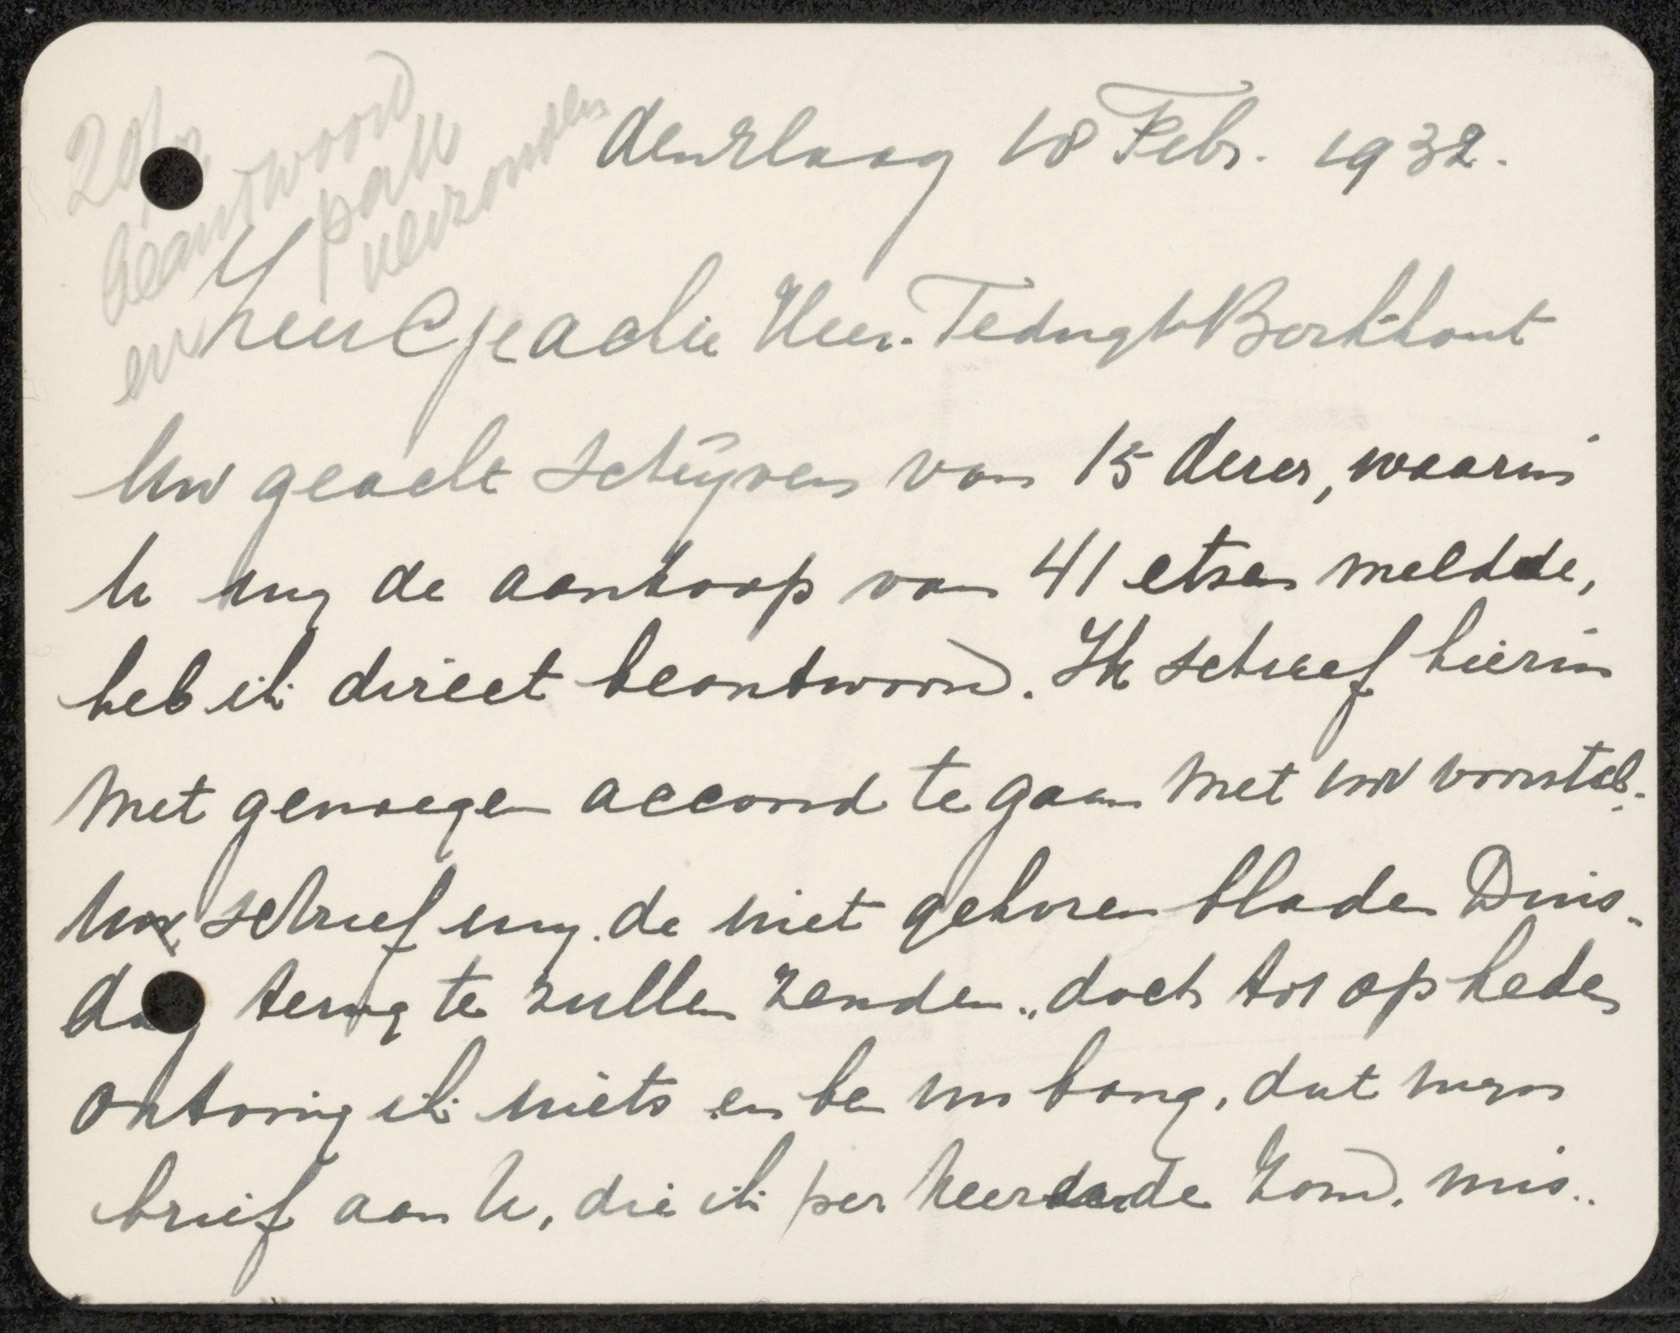 20/2
beantwoord
en pak
verzonden
den Haag 18 Febr. 1932.
Zeer Geachte Heer. Tedingh Berkhout
Uw geacht schrijven van 15 dezer, waarin
U my de aankoop van 41 etsen meldde,
heb ik direct beantwoord. Ik schreef hierin
met genoegen accoord te gaan met uw voorstel.
U schreef my. de niet gekozen bladen Dins-
dag terug te zullen zenden., doch tot op heden
ontving ik niets en ben nu bang, dat myn
brief aan U, die ik per keerende zond, mis..